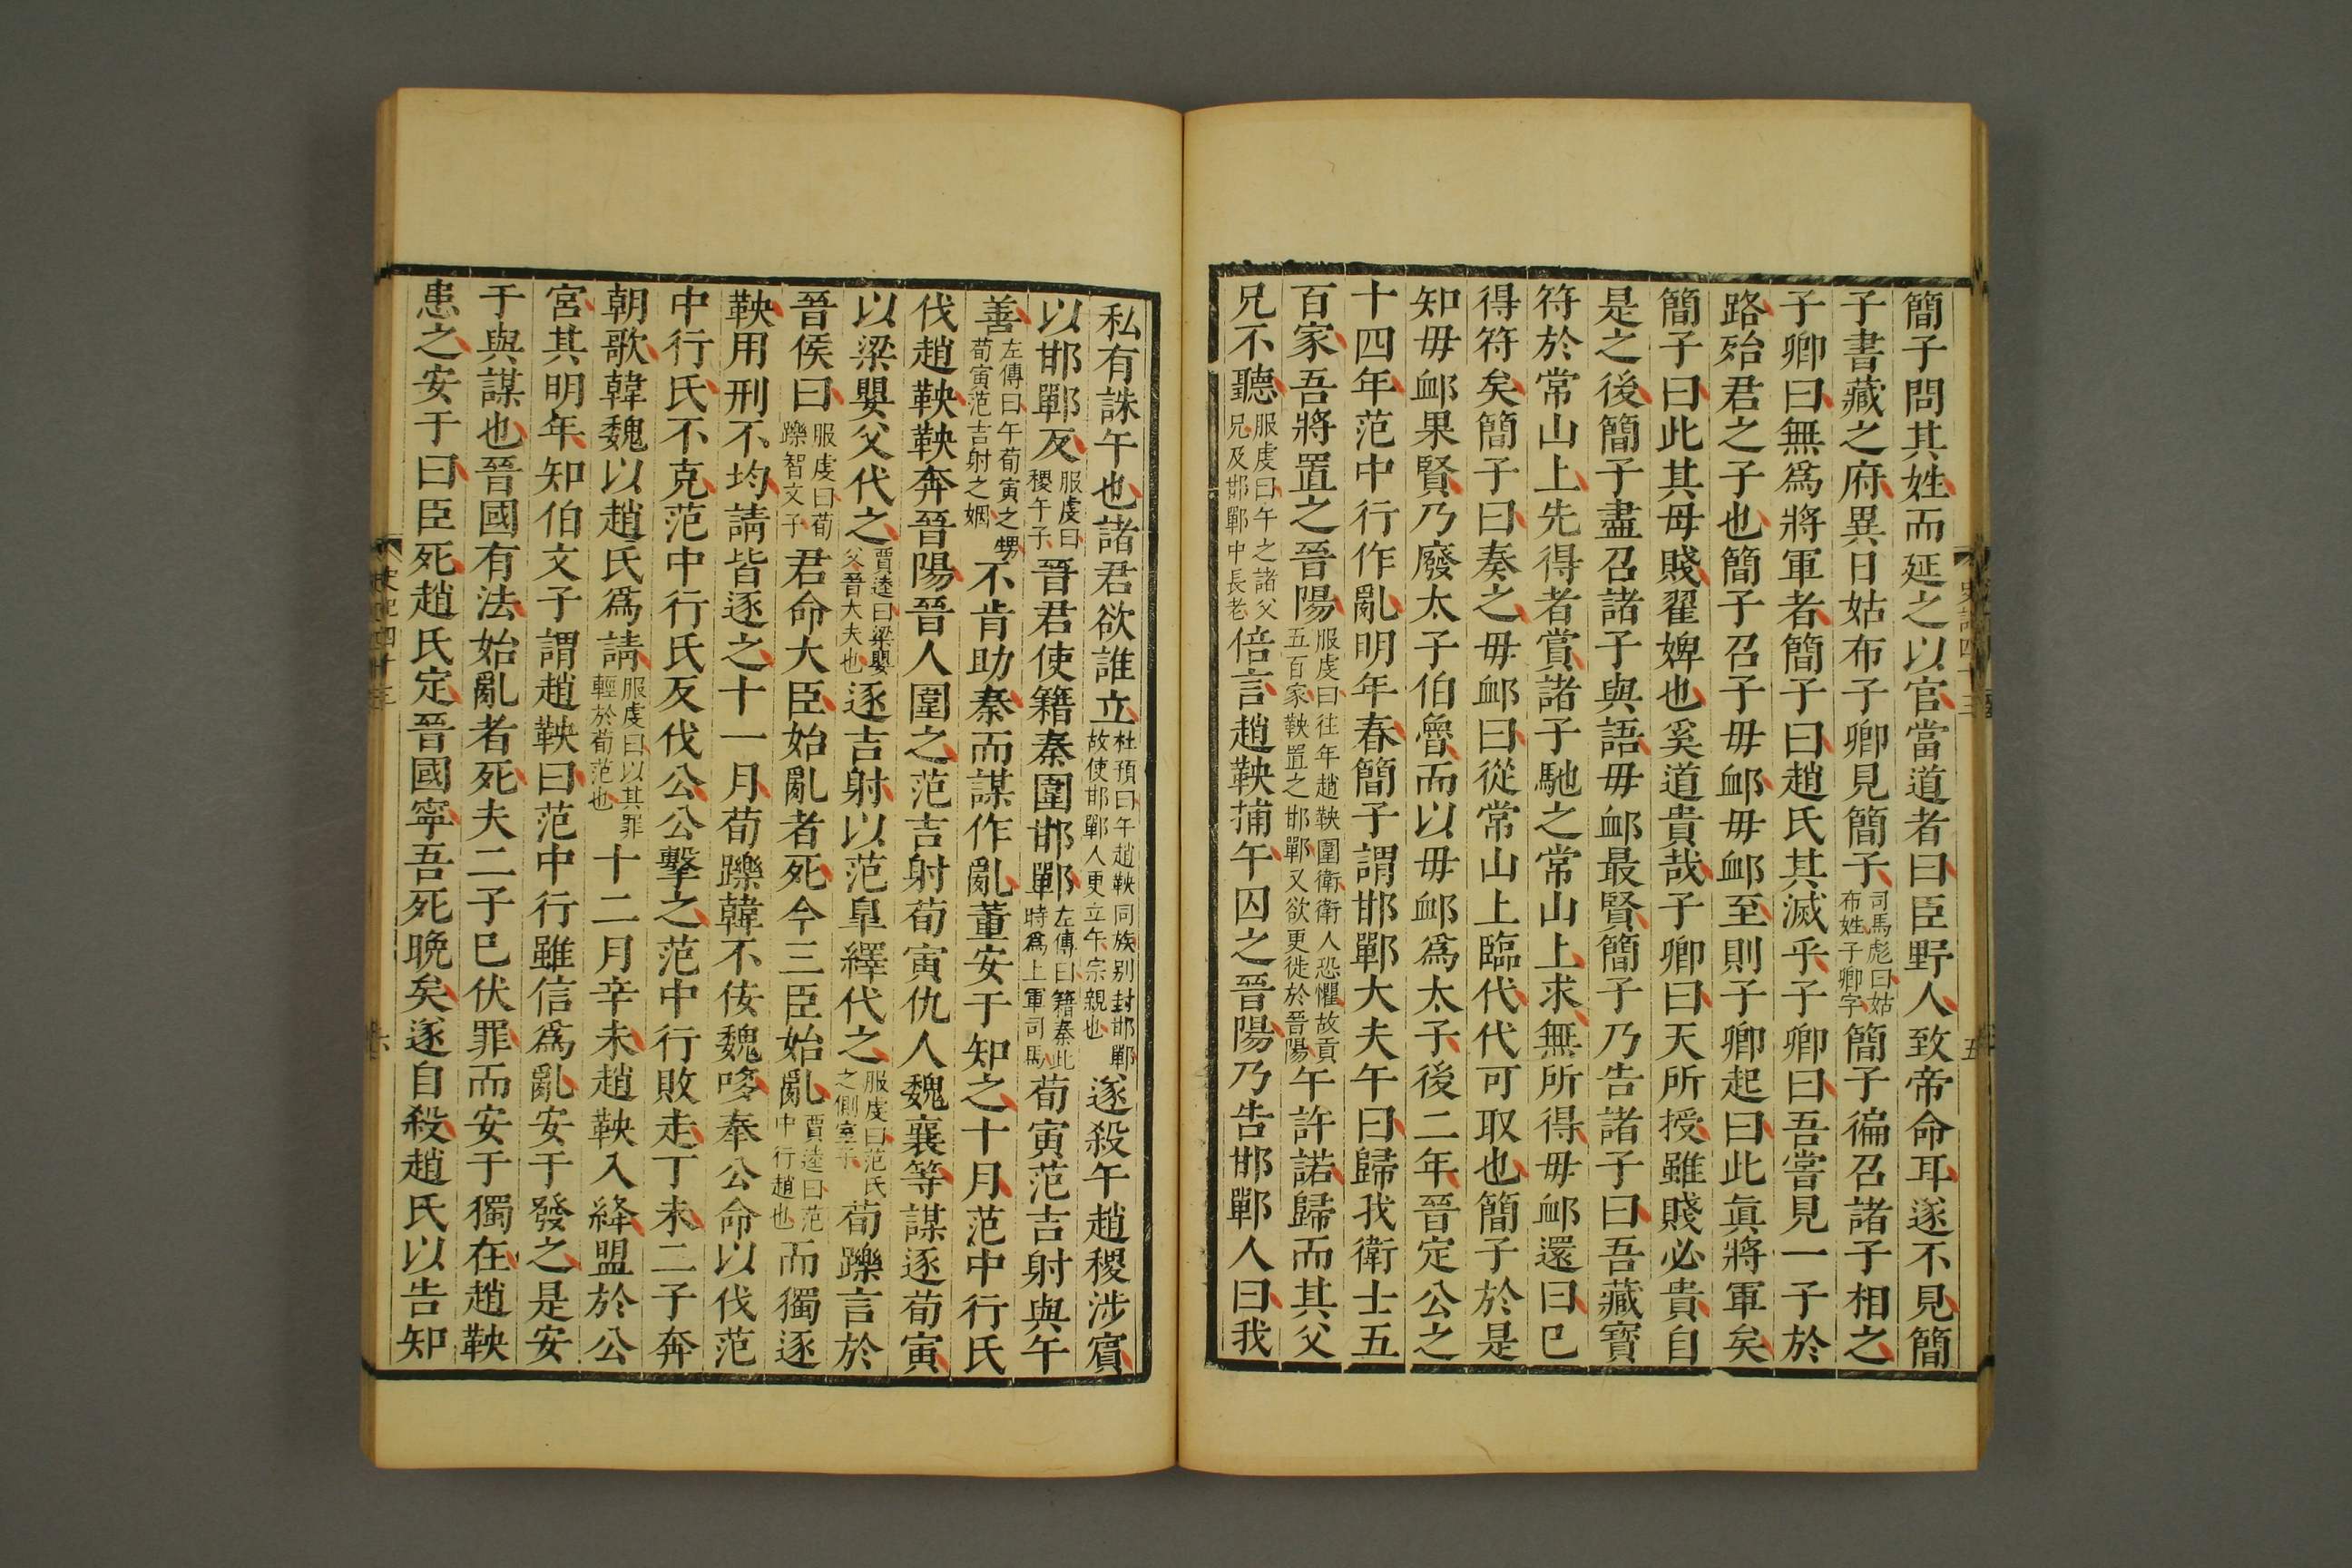 簡子問其姓而延之以官當道者曰臣野人致帝命耳遂不見簡
子書藏之府異日姑布子卿見簡子司馬彪曰姑布姓子卿字簡子徧召諸子相之
子卿曰無爲將軍者簡子曰趙氏其滅乎子卿曰吾嘗見一子於
路殆君之子也簡子召子毋卹毋卹至則子卿起曰此眞將軍矣
簡子曰此其母賤翟婢也奚道貴哉子卿曰天所授雖賤必貴自
是之後簡子盡召諸子與語毋卹最賢簡子乃告諸子曰吾藏寳
符於常山上先得者賞諸子馳之常山上求無所得毋卹還曰已
得符矣簡子曰奏之毋卹曰從常山上臨代代可取也簡子於是
知毋卹果賢乃廢太子伯魯而以毋卹爲太子後二年晉定公之
十四年范中行作亂明年春簡子謂邯鄲大夫午曰歸我衛士五
百家吾將置之晉陽服虔曰往年趙鞅圍衛衛人恐懼故貢五百家鞅置之邯鄲又欲更徙於晉陽午許諾歸而其父
兄不聽服虔曰午之諸父兄及邯鄲中長老倍言趙鞅捕午囚之晉陽乃告邯鄲人曰我
史記四十三
五
私有誅午也諸君欲誰立杜預曰午趙鞅同族别封邯鄲故使邯鄲人更立午宗親也遂殺午趙稷涉賓
以邯鄲反服虔曰稷午子晉君使籍秦圍邯鄲左傳曰籍秦此時爲上軍司馬荀寅范吉射與午
善左傳曰午荀寅之甥荀寅范吉射之姻不肯助秦而謀作亂董安于知之十月范中行氏
伐趙鞅鞅奔晉陽晉人圍之范吉射荀寅仇人魏襄等謀逐荀寅
以梁嬰父代之賈逵曰梁嬰父晉大夫也逐吉射以范皐繹代之服虔曰范氏之側室子荀躒言於
晉侯曰服虔曰荀躒智文子君命大臣始亂者死今三臣始亂賈逵曰范中行趙也而獨逐
鞅用刑不均請皆逐之十一月荀躒韓不佞魏哆奉公命以伐范
中行氏不克范中行氏反伐公公擊之范中行敗走丁未二子奔
朝歌韓魏以趙氏爲請服虔曰以其罪輕於荀范也十二月辛未趙鞅入絳盟於公
宮其明年知伯文子謂趙鞅曰范中行雖信爲亂安于發之是安
于與謀也晉國有法始亂者死夫二子已伏罪而安于獨在趙鞅
患之安于曰臣死趙氏定晉國寧吾死晩矣遂自殺趙氏以告知
史記四十三
六